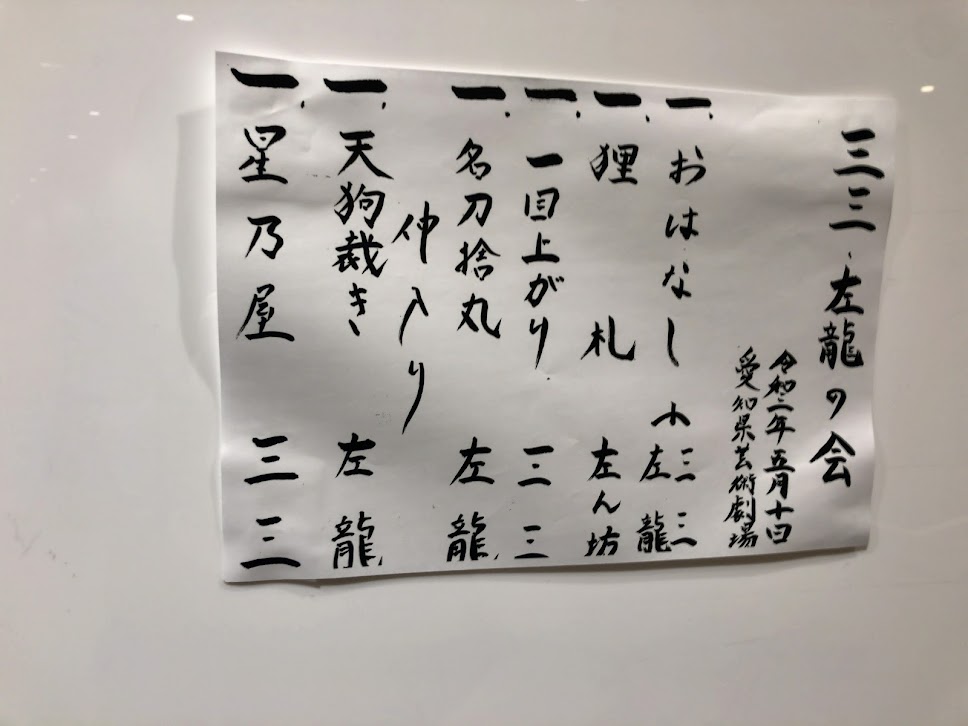 三三・左龍の会
令和三年五月十日
愛知県芸術劇場
一、おはなし 三三 左龍
一、狸札 左ん坊
一、一目上がり 三三
一、名刀捨丸 左龍
仲入り
一、天狗裁き 左龍
一、星乃屋 三三